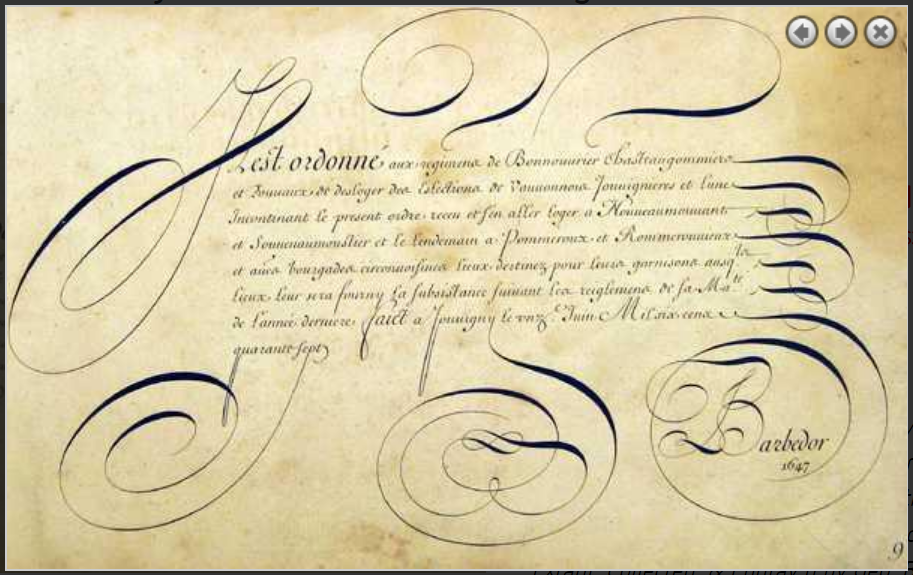 Il est ordonné aux regimens de Bonnouurier Chastrangommiers
et Jouuaux, de desloger des Eslections de Vauuonnois Jouuignieres et Lune
Incontinant le present ordre receu et s'en aller loger a Nouueaumouuant
et Souuenaumoustier et le Lendemain a Pommeroux et Rommerouuieux
et aües bourgades circonuoisines lieux destinez pour leurs garnisons ausq.ls
lieux leur sera fourny la subsistance suiuant les reiglemens de sa Ma.té
de l'année derniere, faict a Jouuigny le vnz.e Juin Mil six cens
quarante sept
Barbedor
1647
9